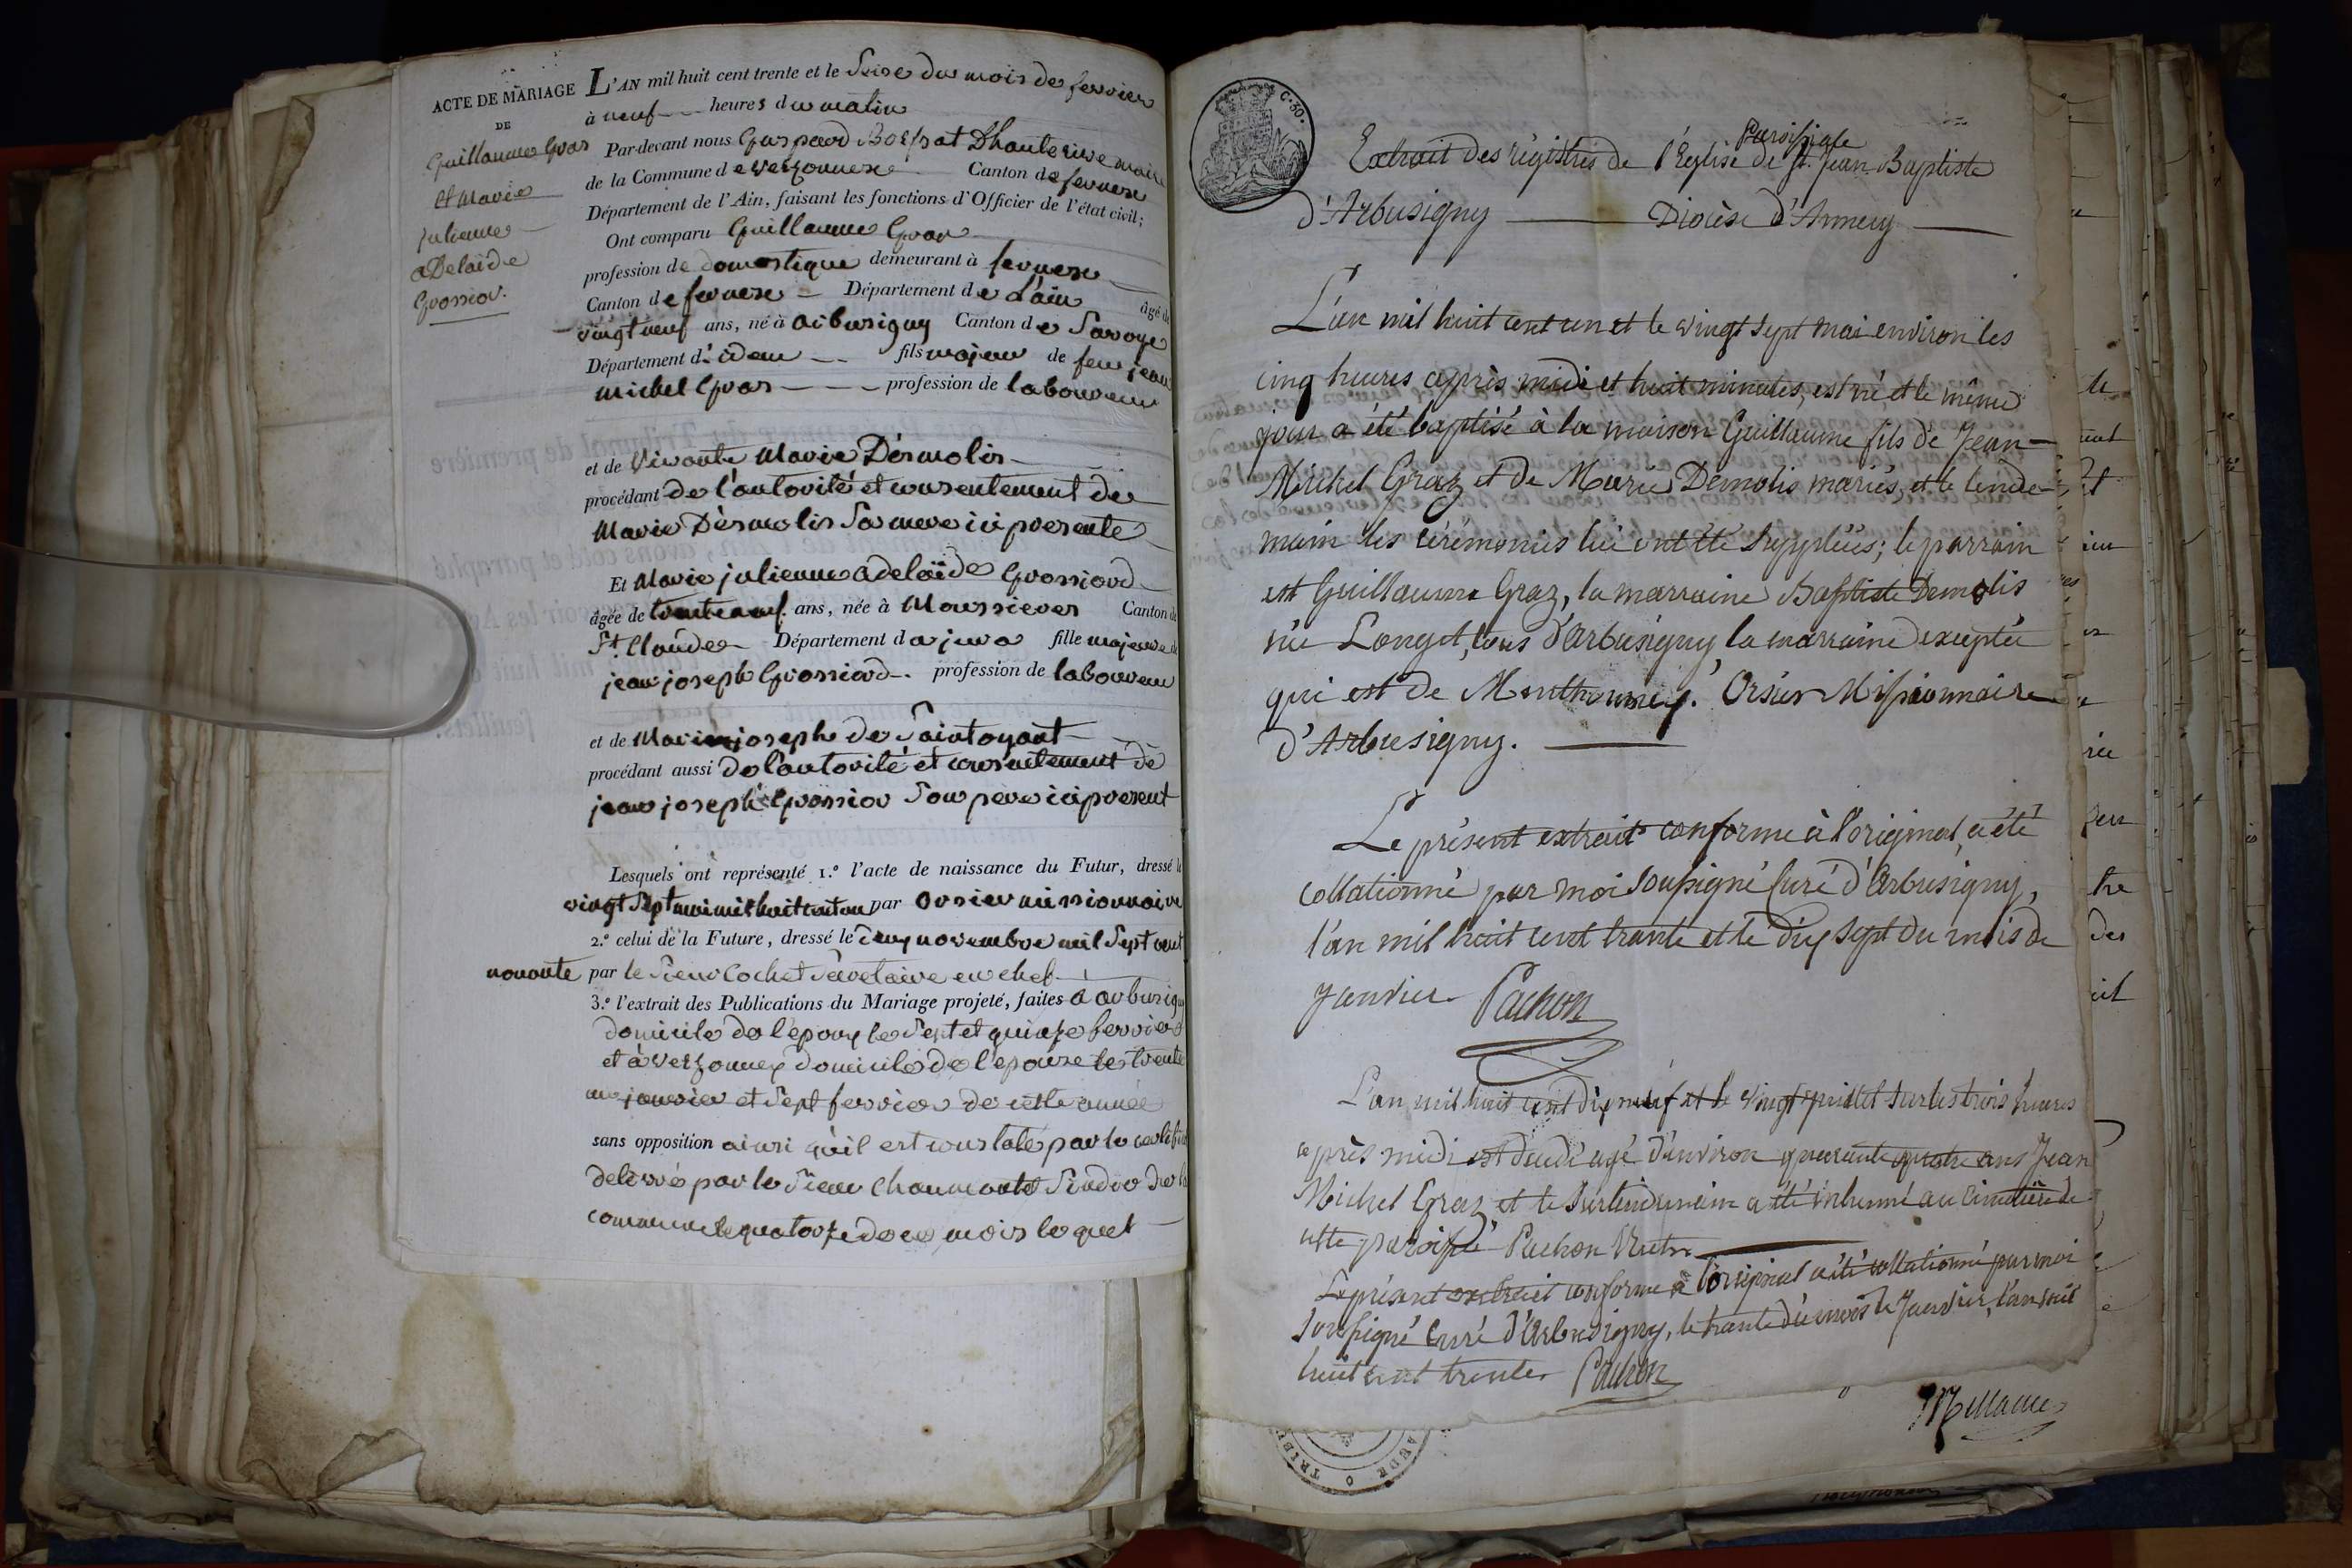 ACTE DE MARIAGE
DE
Guillaume Gras
et Marie
julienne
adelaïde
Grossior.
L'AN mil huit cent trente et le Seise du mois de fevrier
à neuf heures du matin
Par-devant nous Gaspard Boisrat Dhauterive maire
de la Commune de Verzonnex Canton de fernex
Département de l'Ain, faisant les fonctions d'Officier de l'état civil;
Ont comparu Guillaume Gras
profession de domestique demeurant à fernex
Canton de fernex Département de L'ain âgé de
vingt neuf ans, né à Arbusigny Canton de Savoye
Département d'idem fils majeur de feu jean
michel Gras profession de laboureur
et de Vivante Marie Désmolis
procédant de l'autorité et consentement de
Marie Dèsmolis Sa mere ici presente
Et Marie julienne adelaïde Grossiord
âgée de trente neuf ans, née à Moussieres Canton de
St. Claude Département du jura fille majeure de
jean joseph Grossiord profession de laboureur
et de Marie josephe de Saintoyant
procédant aussi de l'autorité et consentement de
jean joseph Grossior Son pere ici present
Lesquels ont représenté 1.º l'acte de naissance du Futur, dressé le
vingt Sept mai mil huit cent un par Orsier missionnaire
2.º celui de la Future, dressé le cinq novembre mil Sept cent
nonante par le Sieur Cochet Secretaire en chef
3.º l'extrait des Publications du Mariage projeté, faites à arbusigny
domicile de l'epoux le Sept et quinze fevrier
et à Verzonnex domicile de l'epouse les trente
un janvier et Sept fevrier de cette année
sans opposition ainsi qu'il est constaté par le certificat
délivré par le Sieur Chaumontet Sindic de la
commune le quatorze de ce mois lequel
C. 30.
Extrait des régistres de l'Eglise Paroissiale de St. Jean-Baptiste
d'Arbusigny Diocèse d'Annecy
L'an mil huit cent un et le vingt sept mai environ les
cinq heures après midi et huit minutes, est né et le même
jour a été baptisé à la maison Guillaume fils de Jean-
Michel Graz et de Marie Démolis mariés, et le lende-
main les cérémonies lui ont été suppléées; le parrain
est Guillaume Graz, la marraine Baptiste Demolis
née Longet, tous d'Arbusigny la marraine exceptée
qui est de Monthoumey. Orsier Missionnaire
d'Arbusigny.
Le présent extrait conforme à l'original, a été
collationné par moi soussigné Curé d'Arbusigny,
l'an mil huit cent trante et le dix sept du mois de
Janvier. Pachon
L'an mil huit cent dix neuf et le vingt juillet sur les trois heures
après midi est décédé agé d'environ quarante quatre ans Jean
Michel Graz et le surlendemain a été inhumé au cimetière de
cette paroisse Pachon Rectr
Le présent extrait conforme à l'original a été collationné par moi
soussigné Curé d'Arbusigny, le trante du mois de Janvier, l'an mil
huit cent trente. Pachon